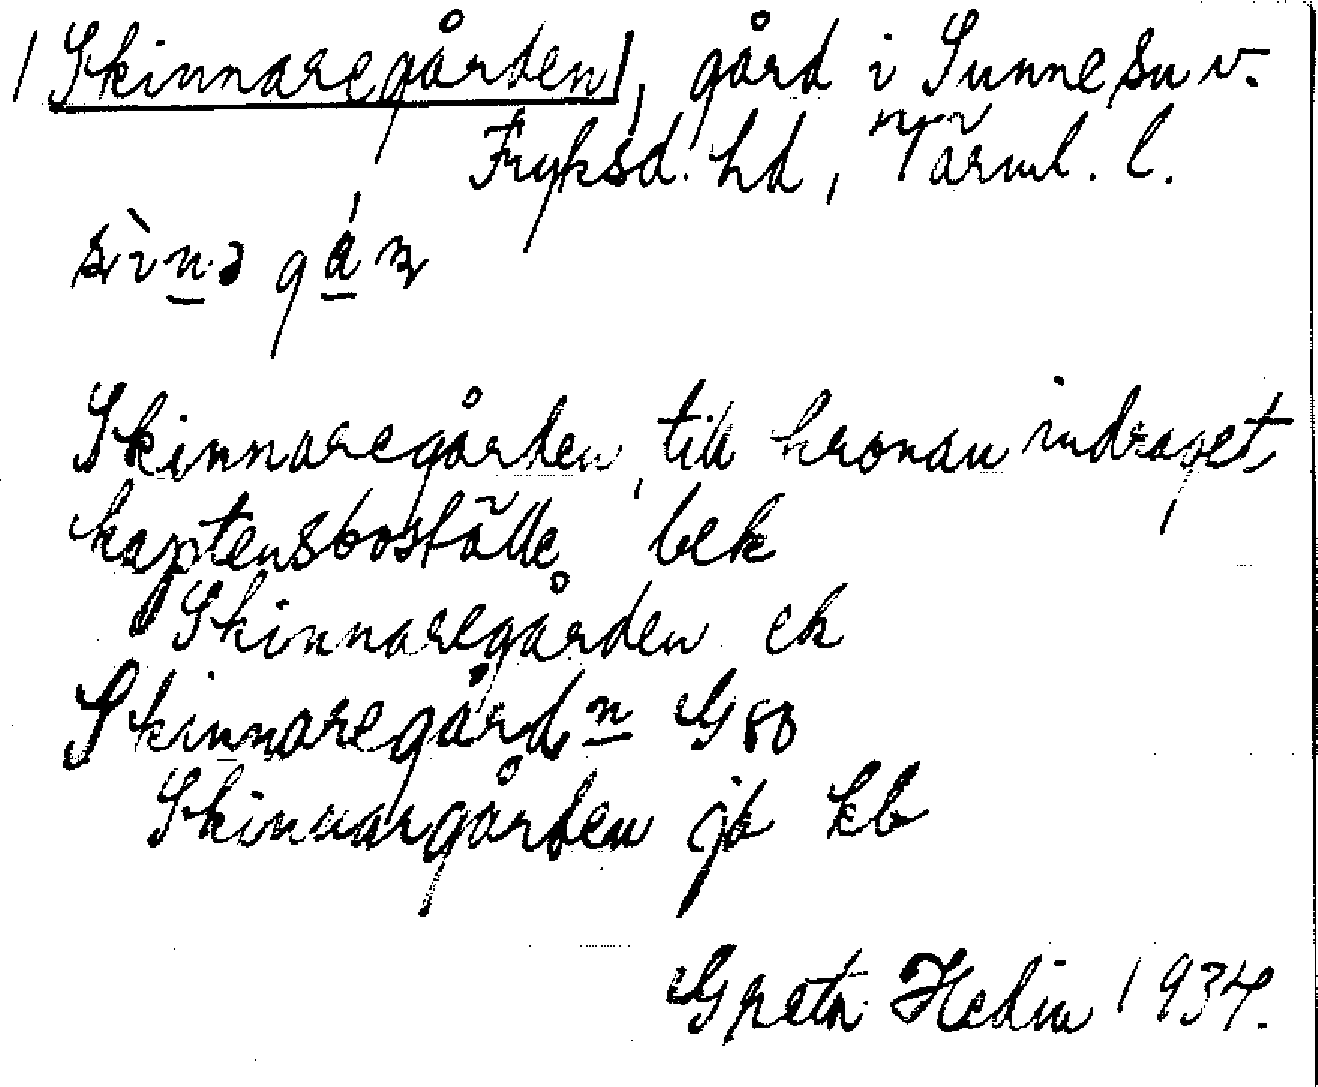 /Skinnaregården/, gård i Sunne sn v.
Fryksd. hd, Värml. l.
Skinnaregården, till kronan indraget
kaptensboställe bek
Skinnaregården ek
Skinnaregårdn G80
Skinnargården jb kb
Greta Hedin 1934.